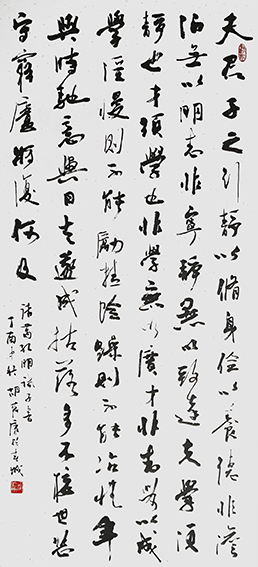 夫君子之行靜以脩身儉以養德非澹
泊無以明志非寧靜無以致遠夫學須
靜也才須學也非學無以廣才非志無以成
學淫慢則不能勵精險躁則不能冶性年
與時馳意與日去遂成枯落多不接世悲
守窮廬將復何及
諸葛孔明誡子書
丁酉年